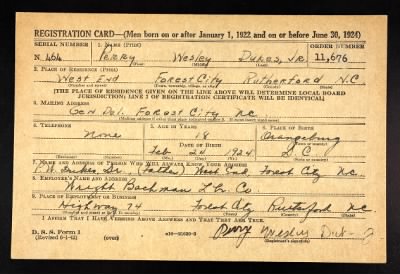 REGISTRATION CARD—(Men born on or after January 1, 1922 and on or before June 30, 1924)
SERIAL NUMBER 1. NAME (Print) ORDER NUMBER
N 464 Perry Wesley Dukes, Jr. 11,676
(First) (Middle) (Last)
2. PLACE OF RESIDENCE (Print)
West End Forest City Rutherford N.C.
(Number and street) (Town, township, village, or city) (County) (State)
[THE PLACE OF RESIDENCE GIVEN ON THE LINE ABOVE WILL DETERMINE LOCAL BOARD
JURISDICTION; LINE 2 OF REGISTRATION CERTIFICATE WILL BE IDENTICAL]
3. MAILING ADDRESS
Gen Del. Forest City N.C.
4. TELEPHONE 5. AGE IN YEARS 6. PLACE OF BIRTH
None 18 Orangeburg
DATE OF BIRTH
Feb 24 1924 S.C.
(Mo.) (Day) (Yr.)
7. NAME AND ADDRESS OF PERSON WHO WILL ALWAYS KNOW YOUR ADDRESS
P.W. Dukes, Sr. (Father) West End, Forest City N.C.
8. EMPLOYER'S NAME AND ADDRESS
Wright Bachman Co.
9. PLACE OF EMPLOYMENT OR BUSINESS
Highway 74 Forest City Rutherford N.C.
(Number and street or R. F. D. number) (Town) (County) (State)
I AFFIRM THAT I HAVE VERIFIED ABOVE ANSWERS AND THAT THEY ARE TRUE.
D. S. S. Form 1
(Revised 6-1-42) (over) Perry Wesley
(Registrant's signature)